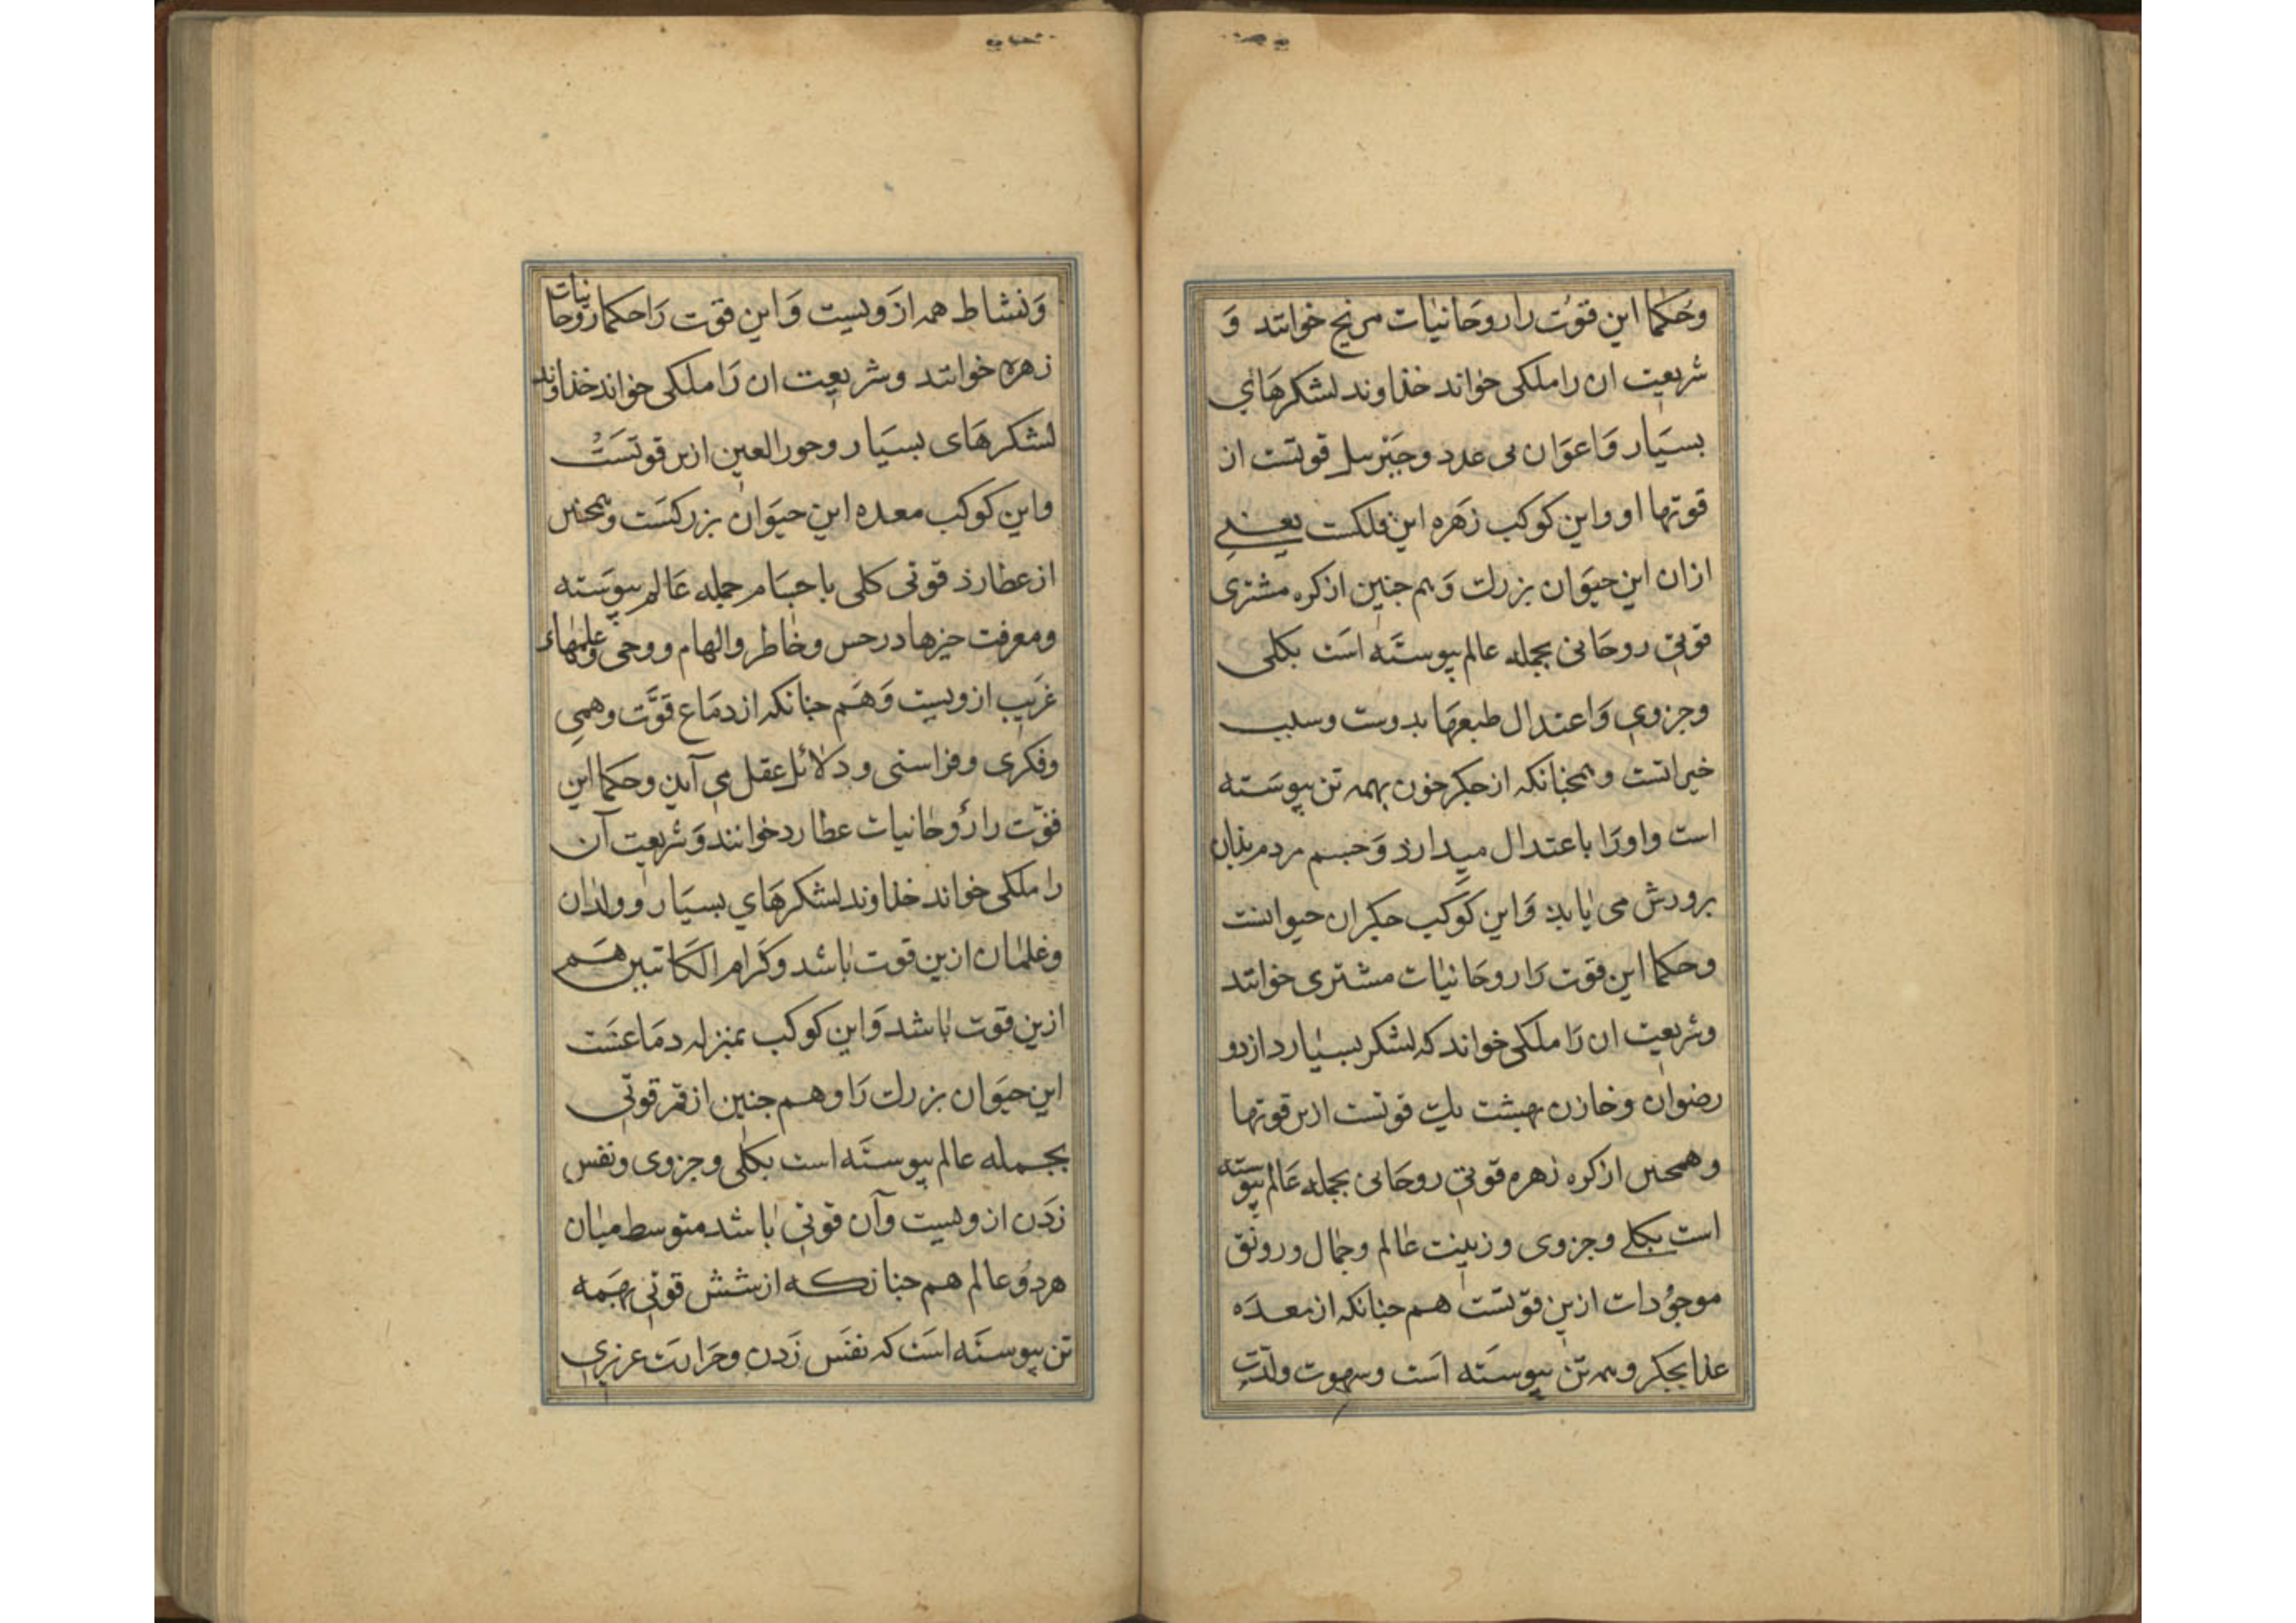 وحکما این قوت را روحانیات مریخ خوانند و
شریعت ان را ملکی خواند خذاوند لشکرهای
بسیار و اعوان بی عدد و جبرسل قوتست از
قوتها او و این کوکب زهره این فلکست یعنی
ازان این حیوان بزرك و هم جنین از کره مشتری
قوتی روحانی بجمله عالم پیوسته است بکلی
و جزوی و اعتدال طبعها بدوست و سبب
خیراتست و همجنانکه از جکر خون بهمه تن پیوسته
است و او را باعتدال میدارذ و جسم مردم بذان
برورش می یابد و این کوکب جکر ان حیوانست
و حکما این قوت را روحانیات مشتری خوانند
و شریعت ان را ملکی خواند که لشکر بسیار دارد و
رضوان و خازن بهشت یك قوتست ازین قوتها
و همجنین از کره زهره قوتی روحانی بجمله عالم پیوسته
است بکلی و جزوی و زینت عالم و جمال و رونق
موجودات ازین قوتست هم جنانکه از معده
غذا بجکر و همه تن پیوسته است و شهوت و لذت
و نشاط همه از ویست و این قوت را حکما روحانیات
زهره خوانند و شریعت ان را ملکی خواند خذاوند
لشکرهای بسیار و حور العین ازین قوتست
و این کوکب معده این حیوان بزرکست و همجنین
از عطارذ قوتی کلی با جسام جمله عالم پیوسته
و معرفت جیزها در حس و خاطر و الهام و وحی و علمهاء
غریب ازویست و هم جنانکه از دماغ قوت وهمی
و فکری و فراستی و دلائل عقل می آید و حکما این
قوت را روحانیات عطارد خوانند و شریعت آن
را ملکی خواند خذاوند لشکرهای بسیار و ولدان
و غلمان ازین قوت باشد و کرام الکاتبین هم
ازین قوت باشد و این کوکب بمنزله دماغست
این حیوان بزرك را و هم جنین از قمر قوتی
بجمله عالم پیوسته است بکلی و جزوی و نفس
زدن ازویست و آن قوتی باشد متوسط میان
هر دو عالم هم جنانکه از شش قوتی بهمه
تن پیوسته است که نفس زدن و حرارت غریزی